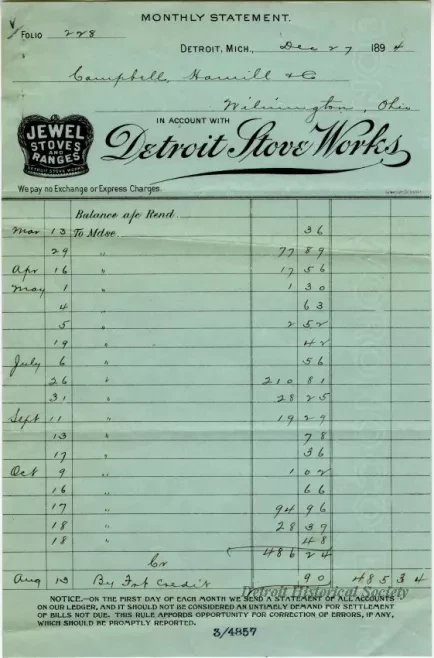 MONTHLY STATEMENT.
FOLIO 228
DETROIT, MICH., Dec 27 1894
Campbell, Hamill & Co
Wilmington, Ohio
IN ACCOUNT WITH
JEWEL STOVES AND RANGES
DETROIT STOVE WORKS
Detroit Stove Works
We pay no Exchange or Express Charges.
Balance a/c Rend
Mar 13 To Mdse 36
29 " 77 89
Apr 16 " 17 56
May 1 " 1 30
4 " 63
5 " 2 52
19 " 42
July 6 " 56
26 " 210 81
31 " 28 25
Sept 11 " 19 29
13 " 78
17 " 36
Oct 9 " 1 02
16 " 66
17 " 94 96
18 " 28 39
18 " 48
486 24
Cr
Aug 13 By Frt Credit 90 485 34
Detroit Historical Society
NOTICE.—ON THE FIRST DAY OF EACH MONTH WE SEND A STATEMENT OF ALL ACCOUNTS
ON OUR LEDGER, AND IT SHOULD NOT BE CONSIDERED AN UNTIMELY DEMAND FOR SETTLEMENT
OF BILLS NOT DUE. THIS RULE AFFORDS OPPORTUNITY FOR CORRECTION OF ERRORS, IF ANY,
WHICH SHOULD BE PROMPTLY REPORTED.
3/4857